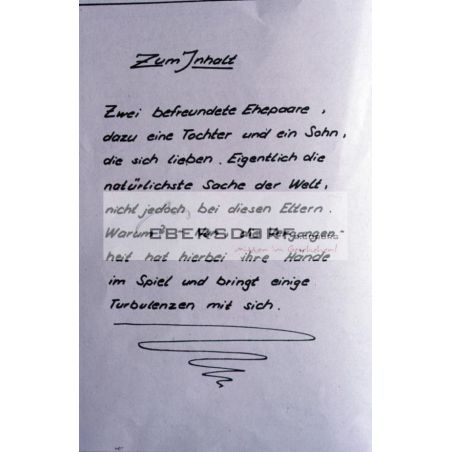 Zum Inhalt
Zwei befreundete Ehepaare,
dazu eine Tochter und ein Sohn,
die sich lieben. Eigentlich die
natürlichste Sache der Welt,
nicht jedoch bei diesen Eltern.
Warum? - die Vergangen-
EBERSDORF
mitten im Geschehen!
heit hat hierbei ihre Hände
im Spiel und bringt einige
Turbulenzen mit sich.